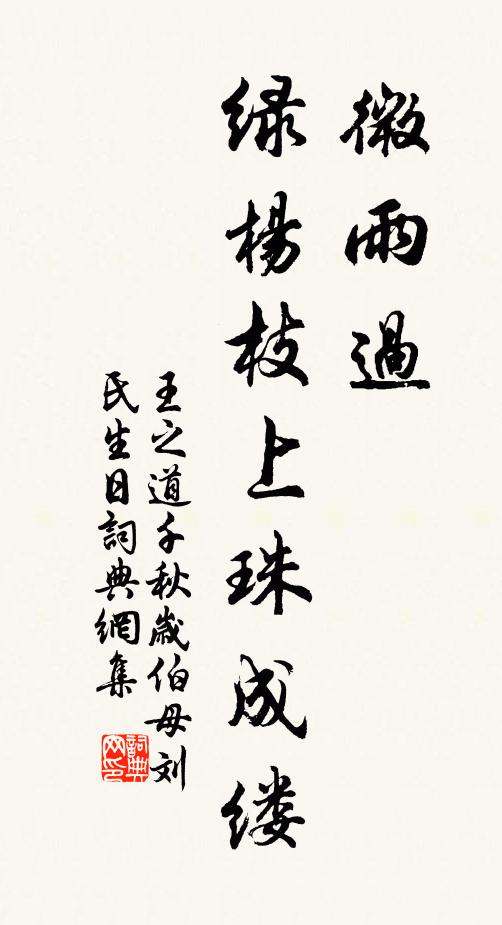 微雨過
绿楊枝上珠成缕
王之道千秋歲伯母刘
氏生日詞典網集
詞典
网印